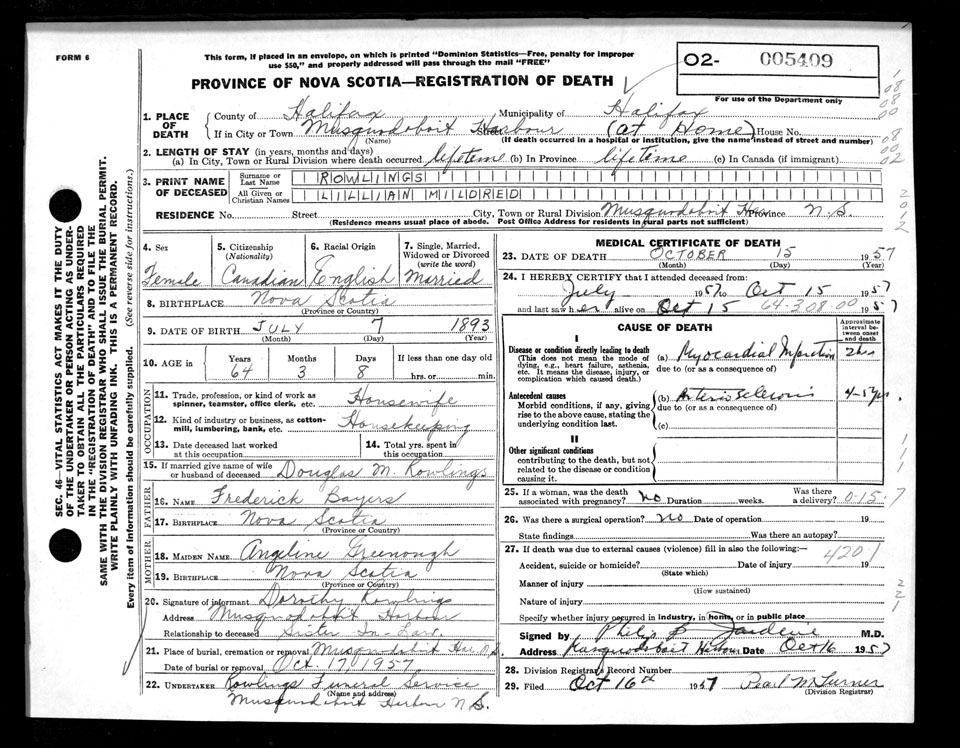 FORM 6
This form, if placed in an envelope, on which is printed "Dominion Statistics—Free, penalty for improper
use $50," and properly addressed will pass through the mail "FREE"
PROVINCE OF NOVA SCOTIA—REGISTRATION OF DEATH
02- 005409
For use of the Department only
1. PLACE OF DEATH
County of Halifax Municipality of Halifax
If in City or Town Musquodoboit Harbour (At Home) House No.
(Name) (If death occurred in a hospital or institution, give the name instead of street and number)
2. LENGTH OF STAY (in years, months and days)
(a) In City, Town or Rural Division where death occurred lifetime (b) In Province lifetime (c) In Canada (if immigrant)
3. PRINT NAME OF DECEASED
Surname or Last Name ROWLINGS
All Given or Christian Names LILLIAN MILDRED
RESIDENCE No. Street City, Town or Rural Division Musquodoboit Har Province N.S.
(Residence means usual place of abode. Post Office Address for residents in rural parts not sufficient)
4. Sex Female
5. Citizenship (Nationality) Canadian
6. Racial Origin English
7. Single, Married, Widowed or Divorced (write the word) Married
8. BIRTHPLACE Nova Scotia
(Province or Country)
9. DATE OF BIRTH JULY 7 1893
(Month) (Day) (Year)
10. AGE in Years 64 Months 3 Days 8 If less than one day old
hrs. or min.
OCCUPATION
11. Trade, profession, or kind of work as spinner, teamster, office clerk, etc. Housewife
12. Kind of industry or business, as cotton-mill, lumbering, bank, etc. Housekeeping
13. Date deceased last worked at this occupation
14. Total yrs. spent in this occupation
15. If married give name of wife or husband of deceased Douglas M. Rowlings
FATHER
16. NAME Frederick Bayers
17. BIRTHPLACE Nova Scotia
(Province or Country)
MOTHER
18. MAIDEN NAME Angeline Greenough
19. BIRTHPLACE Nova Scotia
(Province or Country)
20. Signature of informant Dorothy Rowlings
Address Musquodoboit Harbour
Relationship to deceased Sister In-Law
21. Place of burial, cremation or removal Musquodoboit Har N.S.
Date of burial or removal Oct. 17, 1957
22. UNDERTAKER Rowlings Funeral Service
(Name and address)
Musquodoboit Harbour N.S.
MEDICAL CERTIFICATE OF DEATH
23. DATE OF DEATH OCTOBER 15 1957
(Month) (Day) (Year)
24. I HEREBY CERTIFY that I attended deceased from:
July 1957 to Oct 15 1957
and last saw her alive on Oct 15 1957
64-308-00
CAUSE OF DEATH
Approximate interval between onset and death
I
Disease or condition directly leading to death (a) Myocardial Infarction 2 hrs
(This does not mean the mode of dying, e.g., heart failure, asthenia, etc. It means the disease, injury, or complication which caused death.) due to (or as a consequence of)
Antecedent causes (b) Arteriosclerosis 4-5 yrs.
Morbid conditions, if any, giving rise to the above cause, stating the underlying condition last. due to (or as a consequence of)
(c)
II
Other significant conditions
contributing to the death, but not related to the disease or condition causing it.
25. If a woman, was the death associated with pregnancy? no Duration weeks. Was there a delivery? 0-15-7
26. Was there a surgical operation? no Date of operation 19
State findings Was there an autopsy?
27. If death was due to external causes (violence) fill in also the following:— 4201
Accident, suicide or homicide? Date of injury 19
(State which)
Manner of injury
(How sustained)
Nature of injury
Specify whether injury occurred in industry, in home, or in public place
Signed by Philip D Jardine M.D.
Address Musquodoboit Harbour Date Oct 16 1957
28. Division Registrar's Record Number
29. Filed Oct 16th 1957 Pearl M Turner
(Division Registrar)
SEC. 46—VITAL STATISTICS ACT MAKES IT THE DUTY
OF THE UNDERTAKER OR PERSON ACTING AS UNDER-
TAKER TO OBTAIN ALL THE PARTICULARS REQUIRED
IN THE "REGISTRATION OF DEATH" AND TO FILE THE
SAME WITH THE DIVISION REGISTRAR WHO SHALL ISSUE THE BURIAL PERMIT.
WRITE PLAINLY WITH UNFADING INK. THIS IS A PERMANENT RECORD.
Every item of information should be carefully supplied. (See reverse side for instructions.)